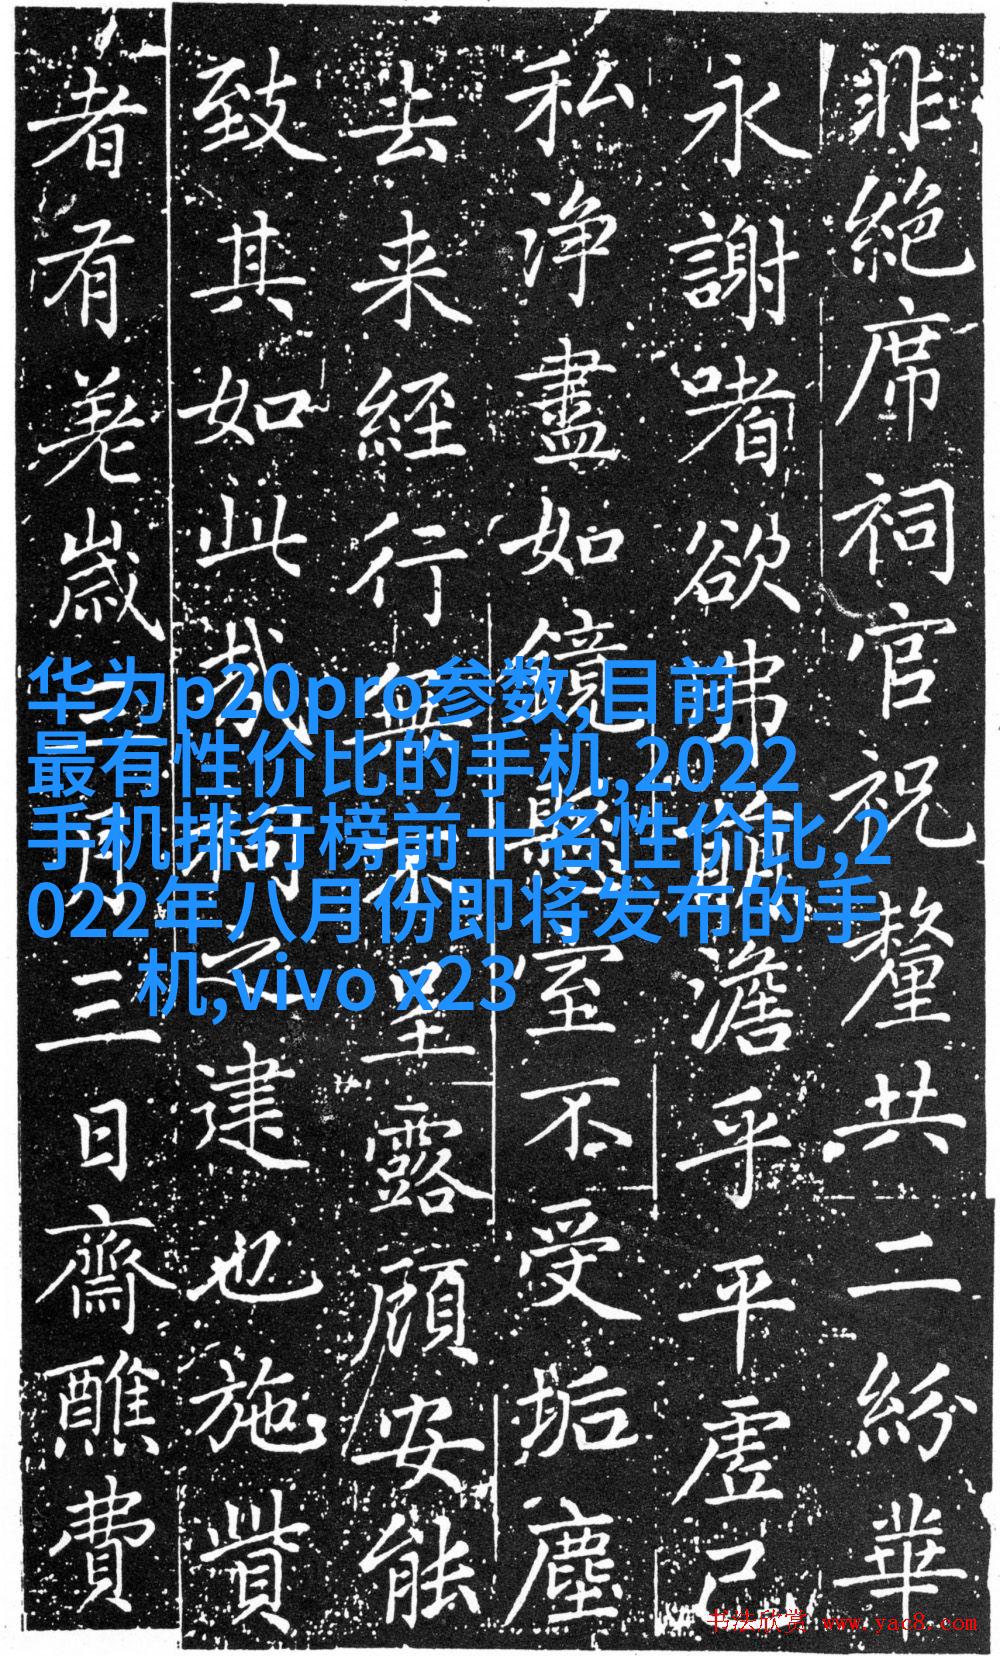 非絕席祠官祝釐共二紛華
永謝嗜欲弗萌澹乎平虛己
私淨盡如鏡無室不受垢塵
去来經行無不呈露顧安能
致其如此哉祠之建也施貲
者有羌歲三月三日齋醮費
华为p20pro参数,目前
最有性价比的手机,2022
手机排行榜前十名性价比,2
022年八月份即将发布的手
机,vivo x23
书法欣赏 www.yac8.com